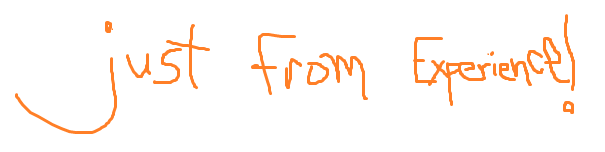 just From Experience!